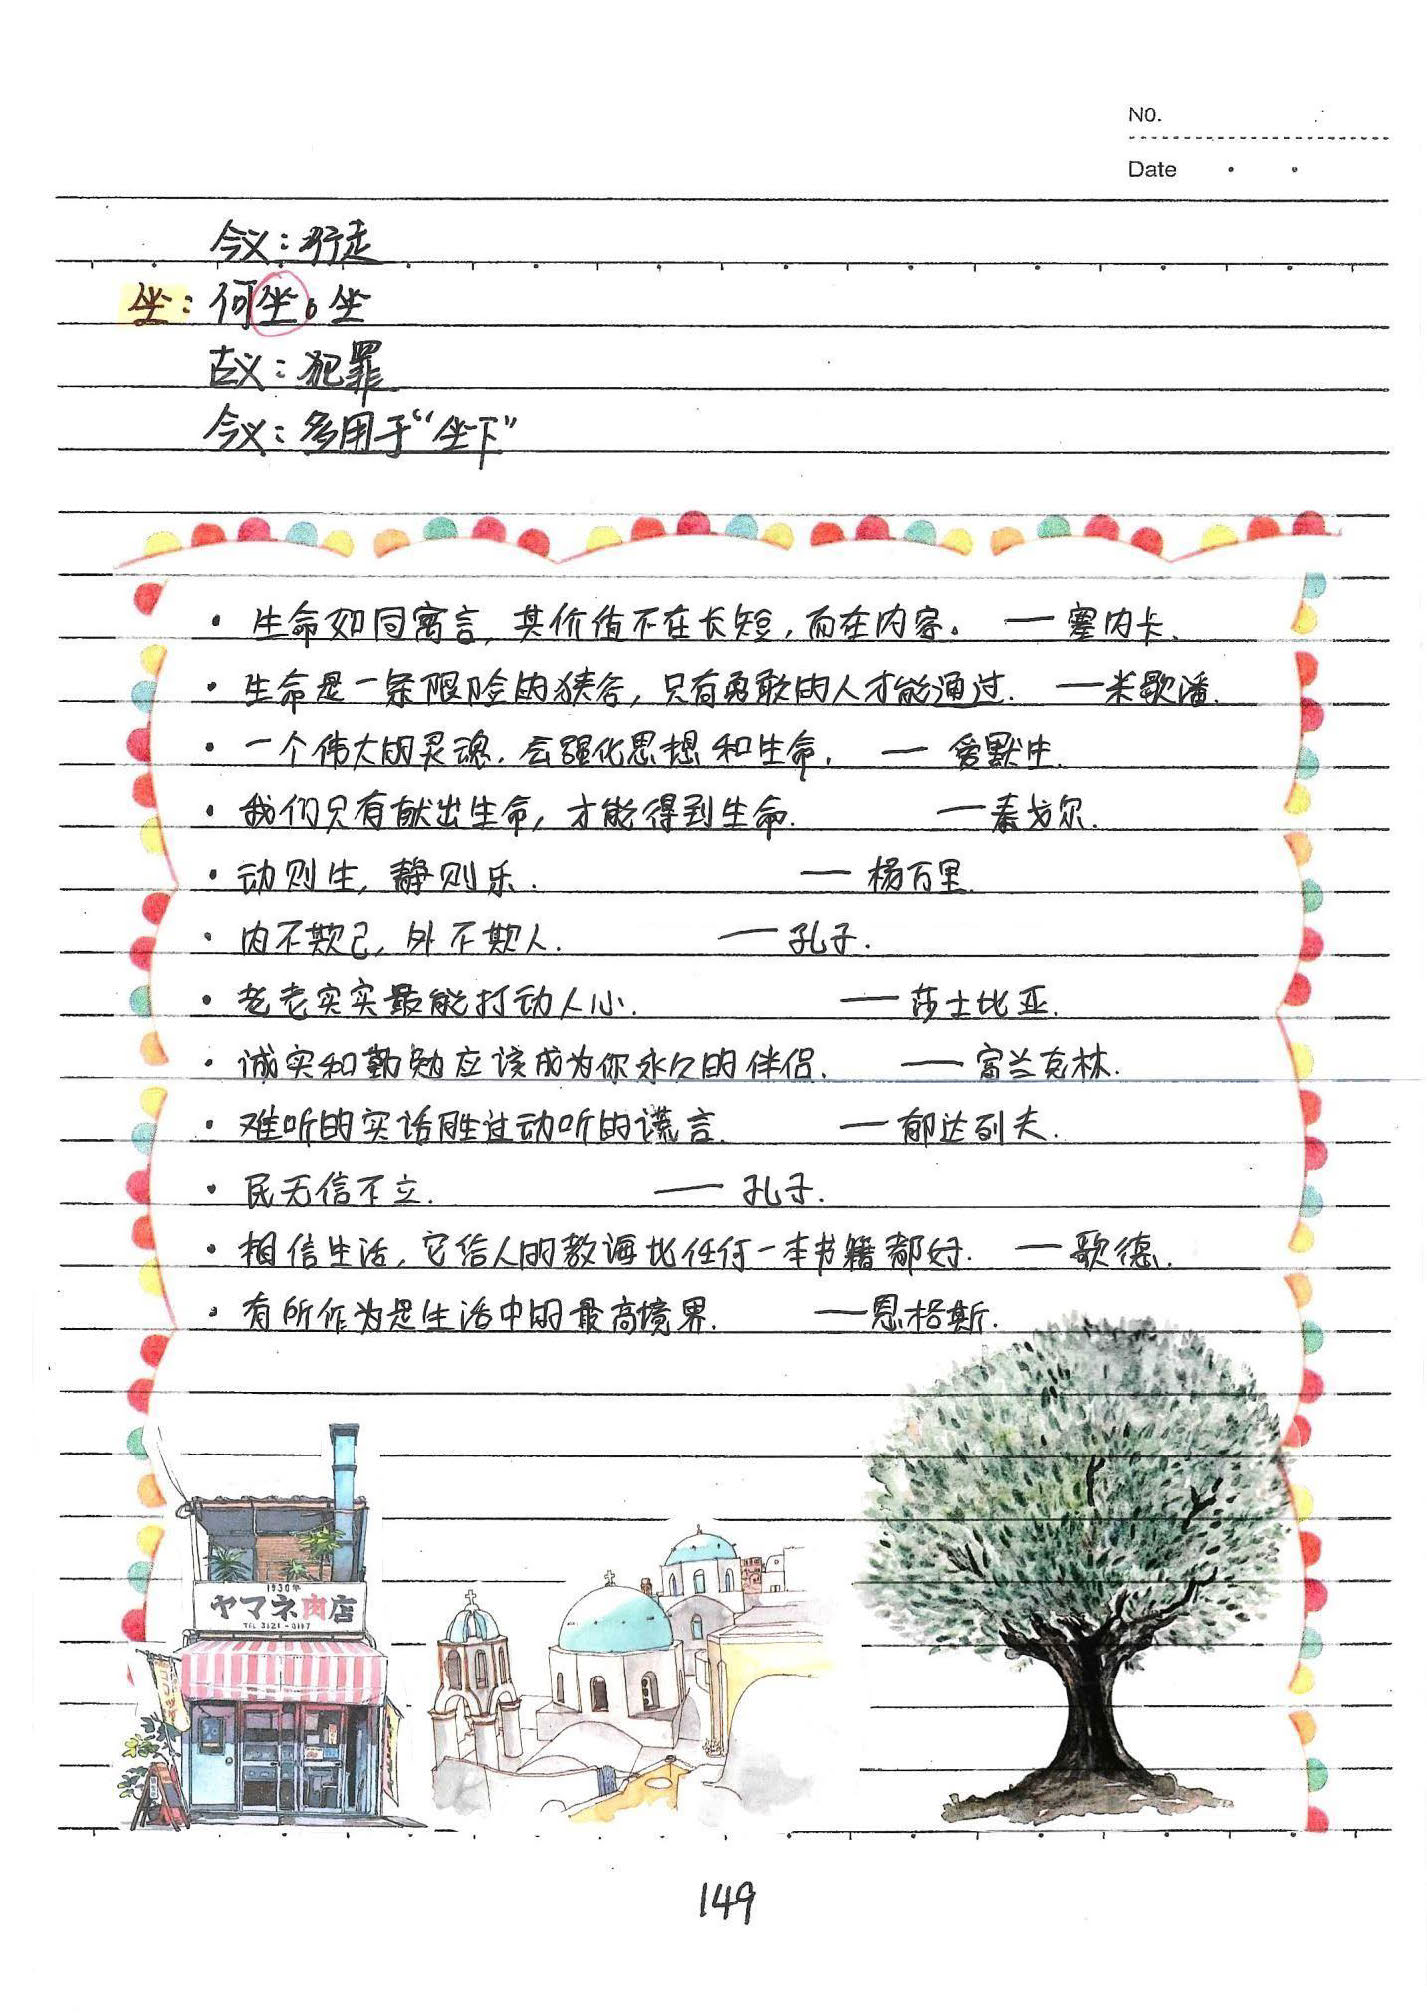 No.
Date
今义：行走
坐：何坐。坐
古义：犯罪
今义：多用于“坐下”
· 生命如同寓言，其价值不在长短，而在内容。 — 塞内卡.
· 生命是一条限险的狭谷，只有勇敢的人才能通过. —米歇潘.
· 一个伟大的灵魂，会强化思想和生命. — 爱默生.
· 我们只有献出生命，才能得到生命. —泰戈尔.
· 动则生，静则乐. — 杨万里.
· 内不欺己，外不欺人. —孔子.
· 老老实实最能打动人心. —莎士比亚.
· 诚实和勤勉应该成为你永久的伴侣. —富兰克林.
· 难听的实话胜过动听的谎言. —郁达列夫.
· 民无信不立. — 孔子.
· 相信生活，它给人的教诲比任何一本书籍都好. —歌德.
· 有所作为是生活中的最高境界. —恩格斯.
1930年
ヤマネ肉店
149